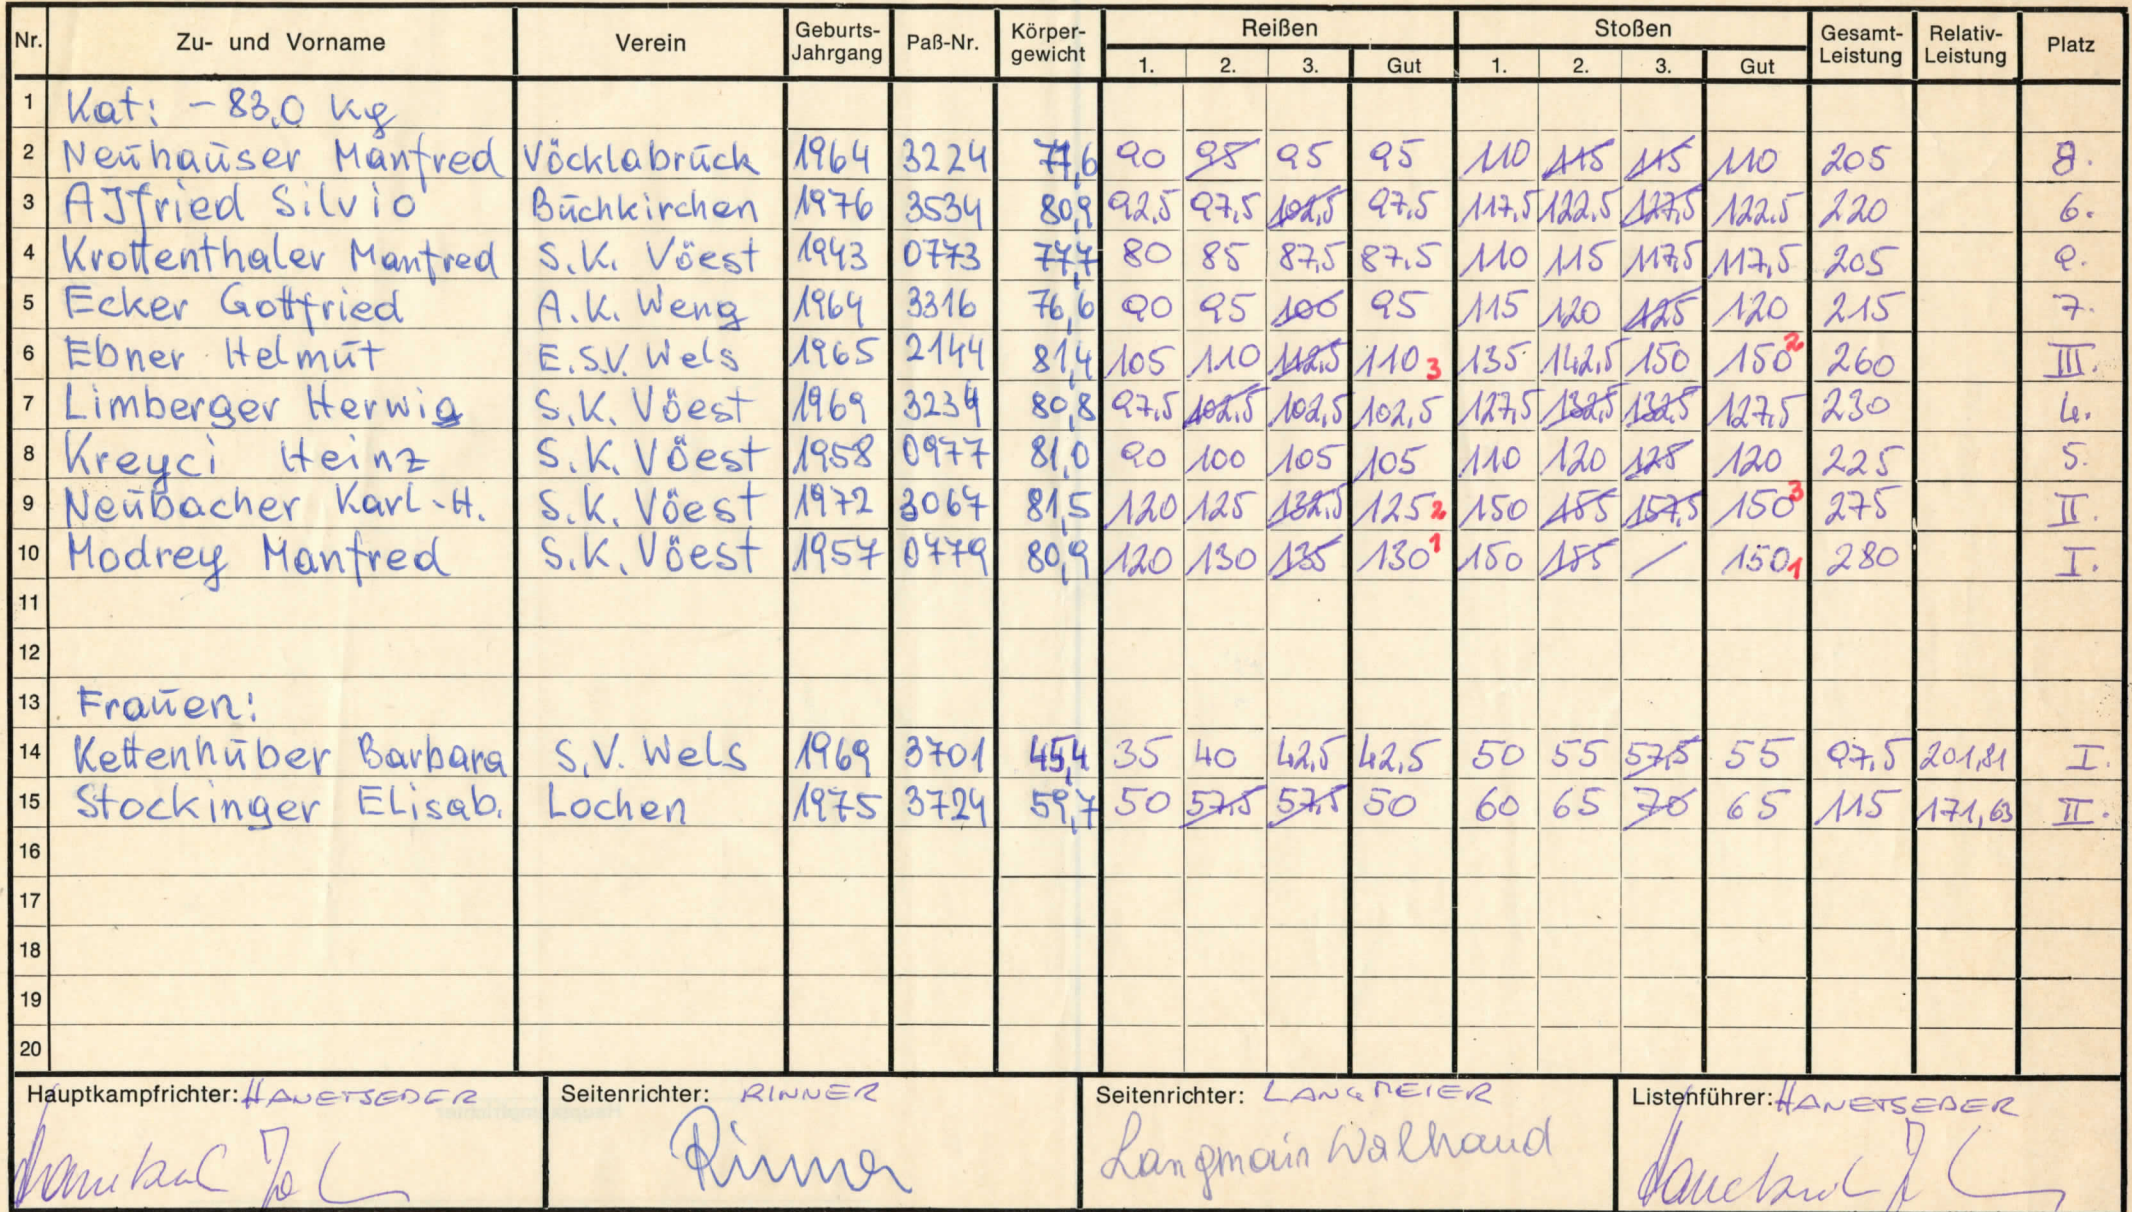 Nr. Zu- und Vorname Verein Geburts-Jahrgang Paß-Nr. Körper-gewicht Reißen Stoßen Gesamt-Leistung Relativ-Leistung Platz
1. 2. 3. Gut 1. 2. 3. Gut
1 Kat: -83,0 kg
2 Neuhauser Manfred Vöcklabruck 1964 3224 77,6 90 95 95 95 110 115 115 110 205 8.
3 Silvio Buchkirchen 1976 3534 80,9 92,5 97,5 102,5 97,5 117,5 122,5 127,5 122,5 220 6.
4 Krottenthaler Manfred S.K. Vöest 1943 0773 77,7 80 85 87,5 87,5 110 115 117,5 117,5 205 9.
5 Ecker Gottfried A.K. Weng 1964 3316 76,6 90 95 100 95 115 120 125 120 215 7.
6 Ebner Helmut E.S.V. Wels 1965 2144 81,4 105 110 112,5 110 3 135 142,5 150 150 2 260 III.
7 Limberger Herwig S.K. Vöest 1969 3234 80,8 97,5 102,5 102,5 102,5 127,5 132,5 132,5 127,5 230 4.
8 Kreyci Heinz S.K. Vöest 1958 0977 81,0 90 100 105 105 110 120 125 120 225 5.
9 Neubacher Karl-H. S.K. Vöest 1972 3067 81,5 120 125 132,5 125 2 150 155 157,5 150 3 275 II.
10 Modrey Manfred S.K. Vöest 1957 0779 80,9 120 130 135 130 1 150 155 / 150 1 280 I.
11
12
13 Frauen:
14 Kettenhuber Barbara S.V. Wels 1969 3701 45,4 35 40 42,5 42,5 50 55 57,5 55 97,5 201,81 I.
15 Stockinger Elisab. Lochen 1975 3724 59,7 50 57,5 57,5 50 60 65 70 65 115 171,63 II.
16
17
18
19
20
Hauptkampfrichter: HANETSEDER Seitenrichter: RINNER Seitenrichter: LANGMEIER Listenführer: HANETSEDER
Rinner